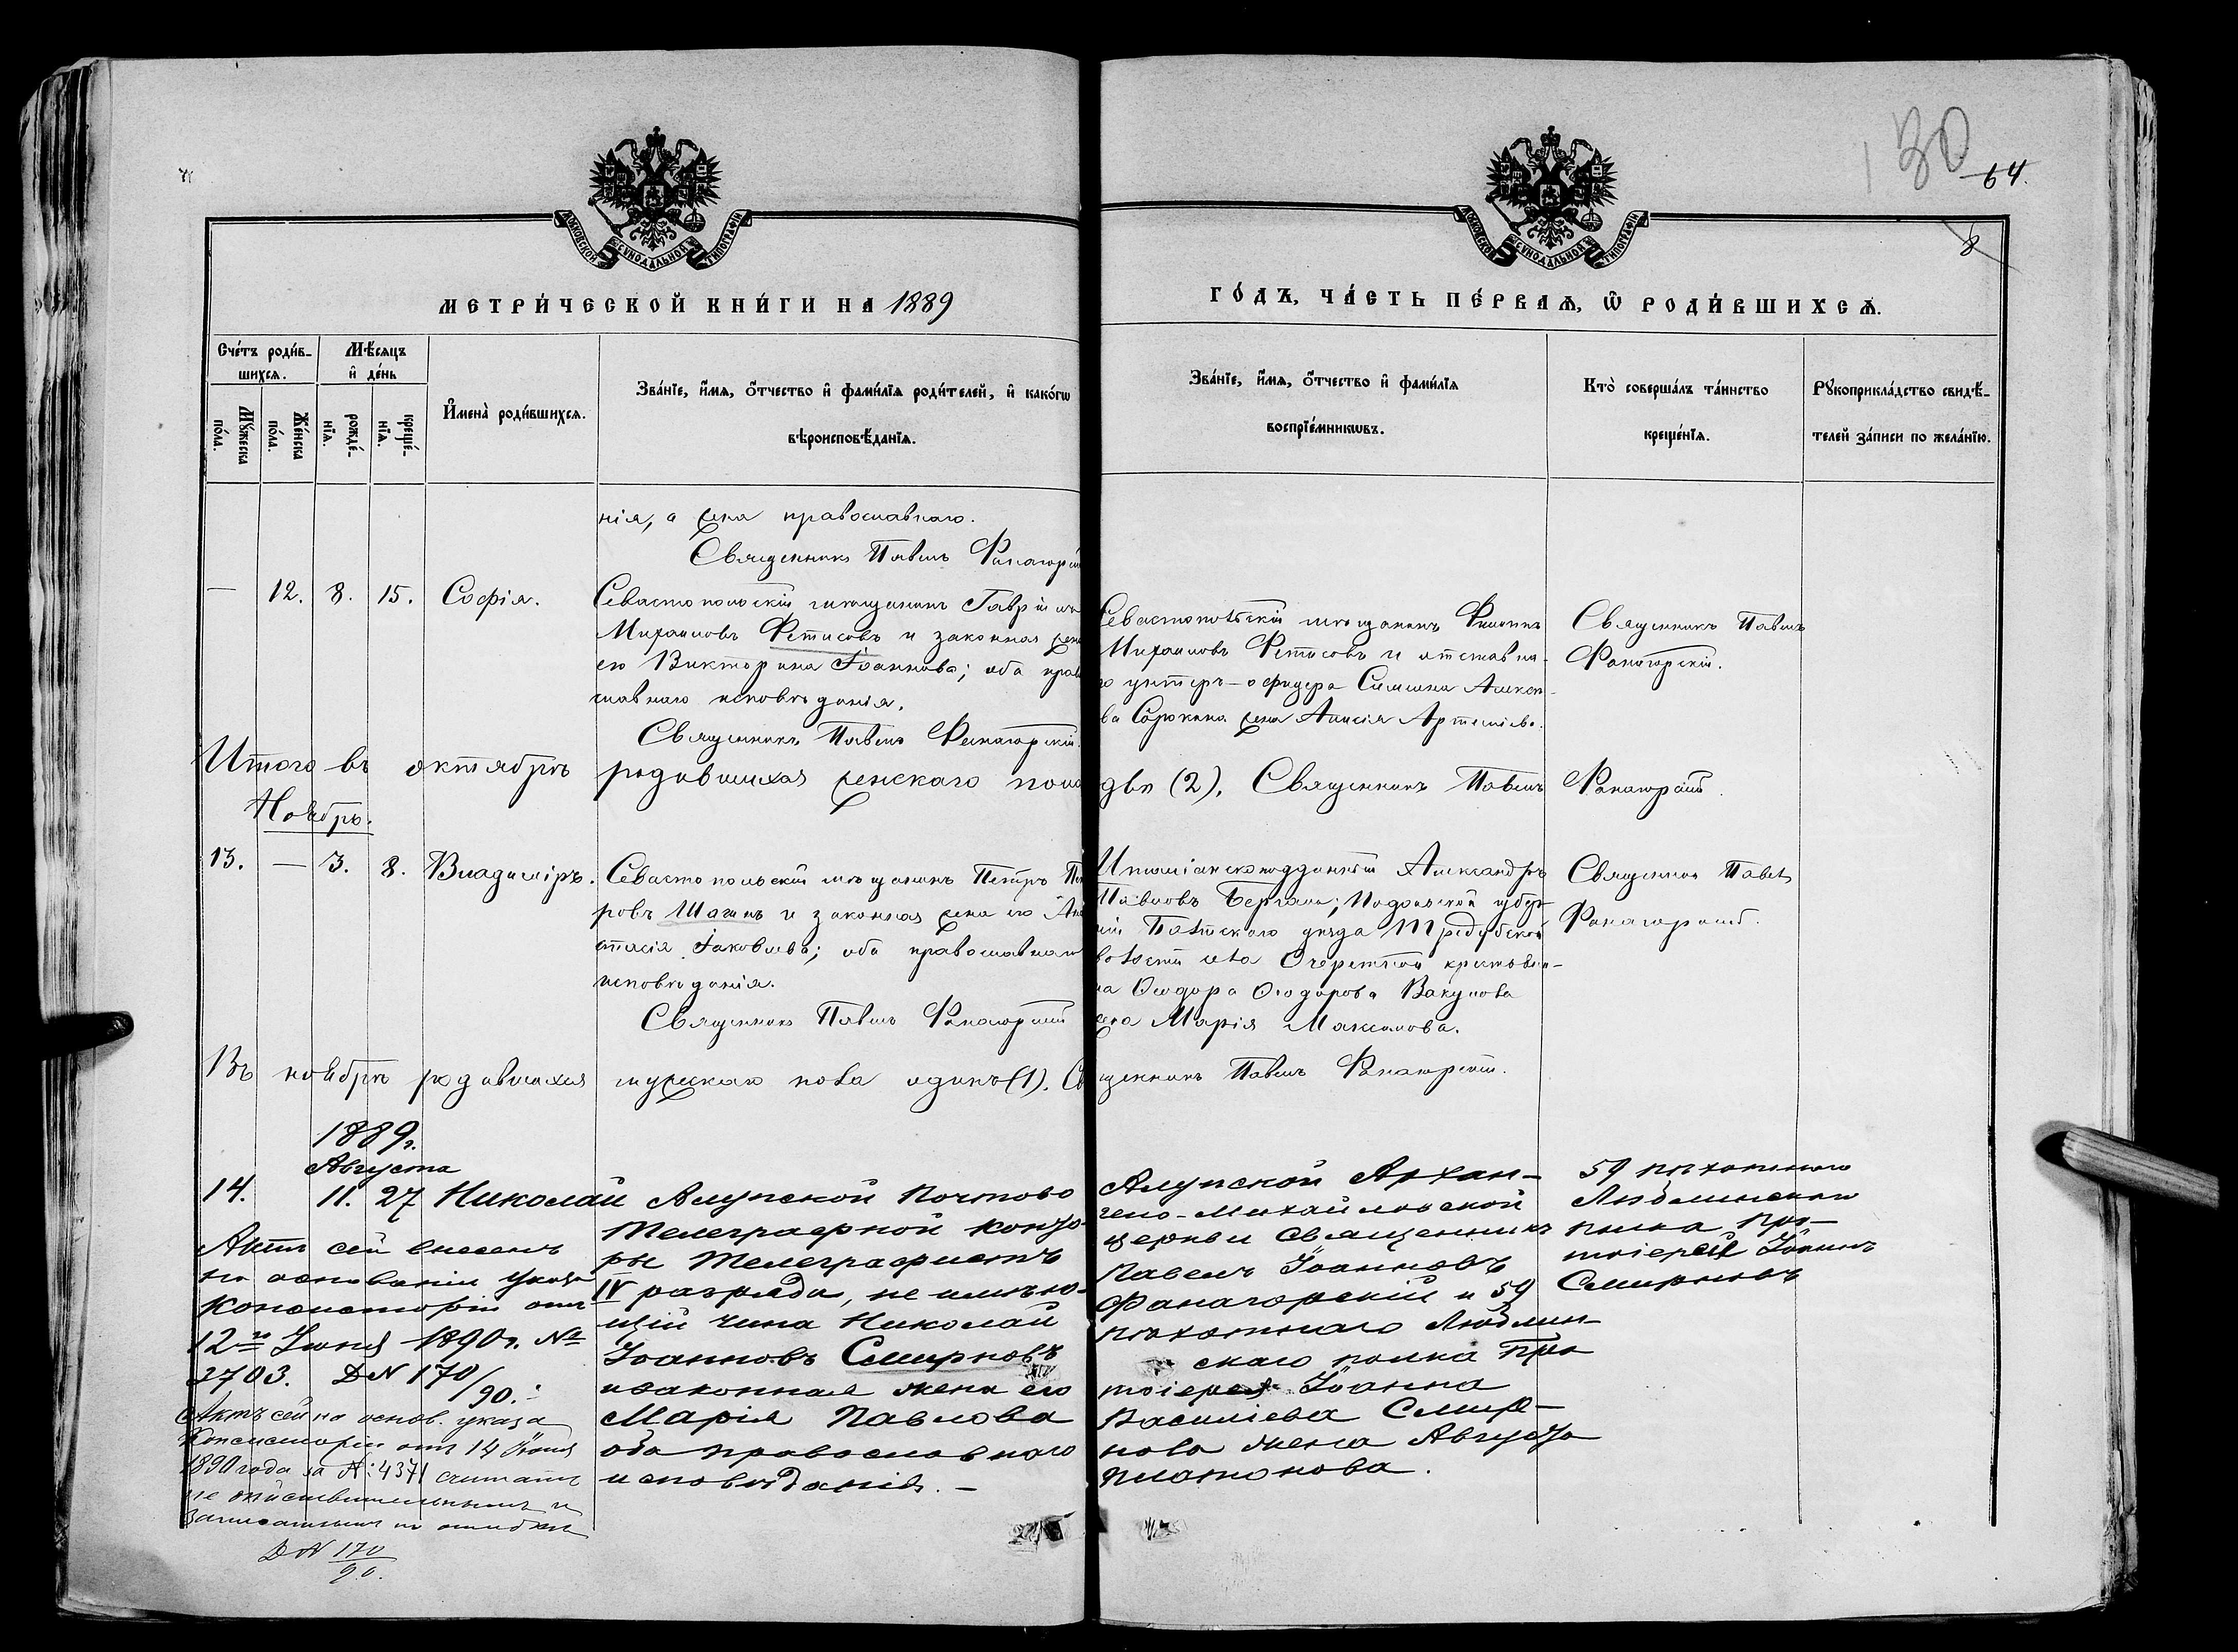 130
64.
8
МОСКОВСКОЙ СѴНОДАЛЬНОЙ ТИПОГРАФІИ
МОСКОВСКОЙ СѴНОДАЛЬНОЙ ТИПОГРАФІИ
МЕТРИ́ЧЕСКОЙ КНИ́ГИ НА 1889
ГО́ДЪ, ЧА́СТЬ ПЕ́РВАѦ, Ѡ РОДИ́ВШИХСѦ.
Сче́тъ роди́в-
шихсѧ.
Мѣ́сѧцъ
и҆ де́нь
Мꙋ́жеска
по́ла.
Же́нска
по́ла.
рожде́-
нїѧ.
креще́-
нїѧ.
И҆мена̀ роди́вшихсѧ.
Зва́нїе, и҆́мѧ, ѻ҆́тчество и҆ фами́лїѧ роди́телей, и҆ како́гѡ
вѣроисповѣ́данїѧ.
Зва́нїе, и҆́мѧ, ѻ҆́тчество и҆ фами́лїѧ
воспрїе́мникѡвъ.
Кто̀ соверша́лъ та́инство
креще́нїѧ.
Рꙋкоприкла́дство свидѣ́-
телей за́писи по жела́нїю.
нія, а жена православнаго.
Священникъ Павелъ Фанагорскій
— 12. 8. 15. Софія.
Севастопольскій мѣщанинъ Гавріилъ
Михаиловъ Фетисовъ и законная жена
его Викторина Іоаннова; оба право
славнаго исповѣданія.
Священникъ Павелъ Фанагорскій.
Севастопольскій мѣщанинъ Филиппъ
Михаиловъ Фетисовъ и отставна-
го унтеръ-офицера Симеона Алексѣ-
ва Сорокина жена Анисія Артеміева.
Священникъ Павелъ
Фанагорскій.
Итого въ октябрѣ родившихся женскаго пола двѣ (2). Священникъ Павелъ Фанагорскій.
Ноябрь.
13. — 3. 8. Владиміръ.
Севастопольскій мѣщанинъ Петръ Пет
ровъ Шагинъ и законная жена его Ана
стасія Іаковлева; оба православнаго
исповѣданія.
Священникъ Павелъ Фанагорскій
Италіанскоподданный Александръ
Павловъ Подольской губер
ніи Балтскаго уѣзда
волости села крестьяни-
на Ѳеодора Ѳеодорова Вакулова
жена Марія Максимова.
Священникъ Павелъ
Фанагорскій.
Въ ноябрѣ родившихся мужскаго пола одинъ (1). Священникъ Павелъ Фанагорскій.
1889г.
Августа
14. 11. 27 Николай
Алупской Почтово
Телеграфной Конто-
ры Телеграфистъ
IV разряда, не имѣю-
щій чина Николай
Іоанновъ Смирновъ
и законная жена его
Марія Павлова
оба православнаго
исповѣданія. —
Алупской Архан-
гело-Михайловской
церкви Священникъ
Павелъ Іоанновъ
Фанагорскій и 59
пѣхотнаго Люблин-
скаго полка Про
тоіерея Іоанна
Василіева Смир-
нова жена Августа
Платонова.
59 пѣхотнаго
Люблинскаго
полка Про-
тоіерей Іоаннъ
Смирновъ
Актъ сей внесенъ
на основаніи указа
Консисторіи отъ
12го Іюня 1890г. №
2703. Д№ 170/90.
Актъ сей на основ. указа
Консисторіи отъ 14 Іюня
1890 года за №: 4371 считать
не дѣйствительнымъ и
записаннымъ по ошибкѣ
Д№ 170/90.